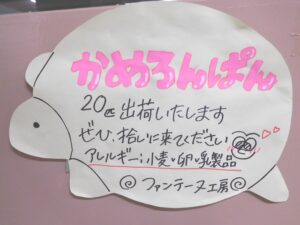 かめろんぱん
20匹 出荷いたします
ぜひ、拾いに来てください
アレルギー:小麦・卵・乳製品
ファンテーヌ工房